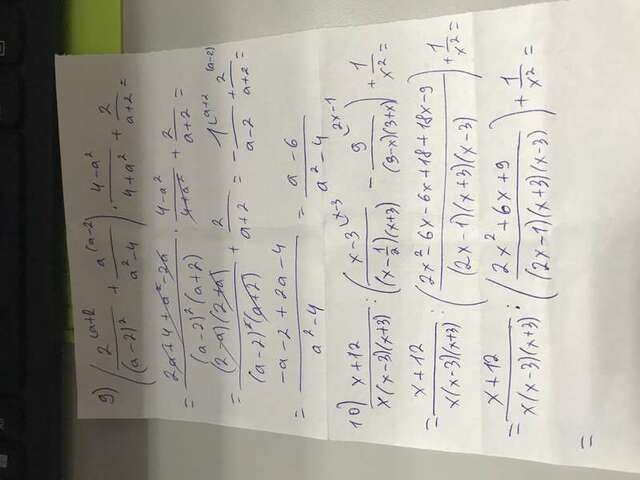 9) (2^(a+2 / (a-2)² + a^(a-2 / a²-4) · 4-a² / 4+a² + 2 / a+2 =
= 2a+4+a²-2a / (a-2)²(a+2) · 4-a² / 4+a² + 2 / a+2 =
= (2-a)(2+a) / (a-2)²(a+2) + 2 / a+2 = -1^(a+2 / a-2 + 2^(a-2) / a+2 =
= -a-2+2a-4 / a²-4 = a-6 / a²-4
10) x+12 / x(x-3)(x+3) : (x-3^(x-3 / (x-1/2)(x+3) - 9^(2x-1 / (3-x)(3+x)) + 1 / x² =
= x+12 / x(x-3)(x+3) : (2x²-6x-6x+18+18x-9 / (2x-1)(x+3)(x-3)) + 1 / x² =
= x+12 / x(x-3)(x+3) : (2x²+6x+9 / (2x-1)(x+3)(x-3)) + 1 / x² =
=